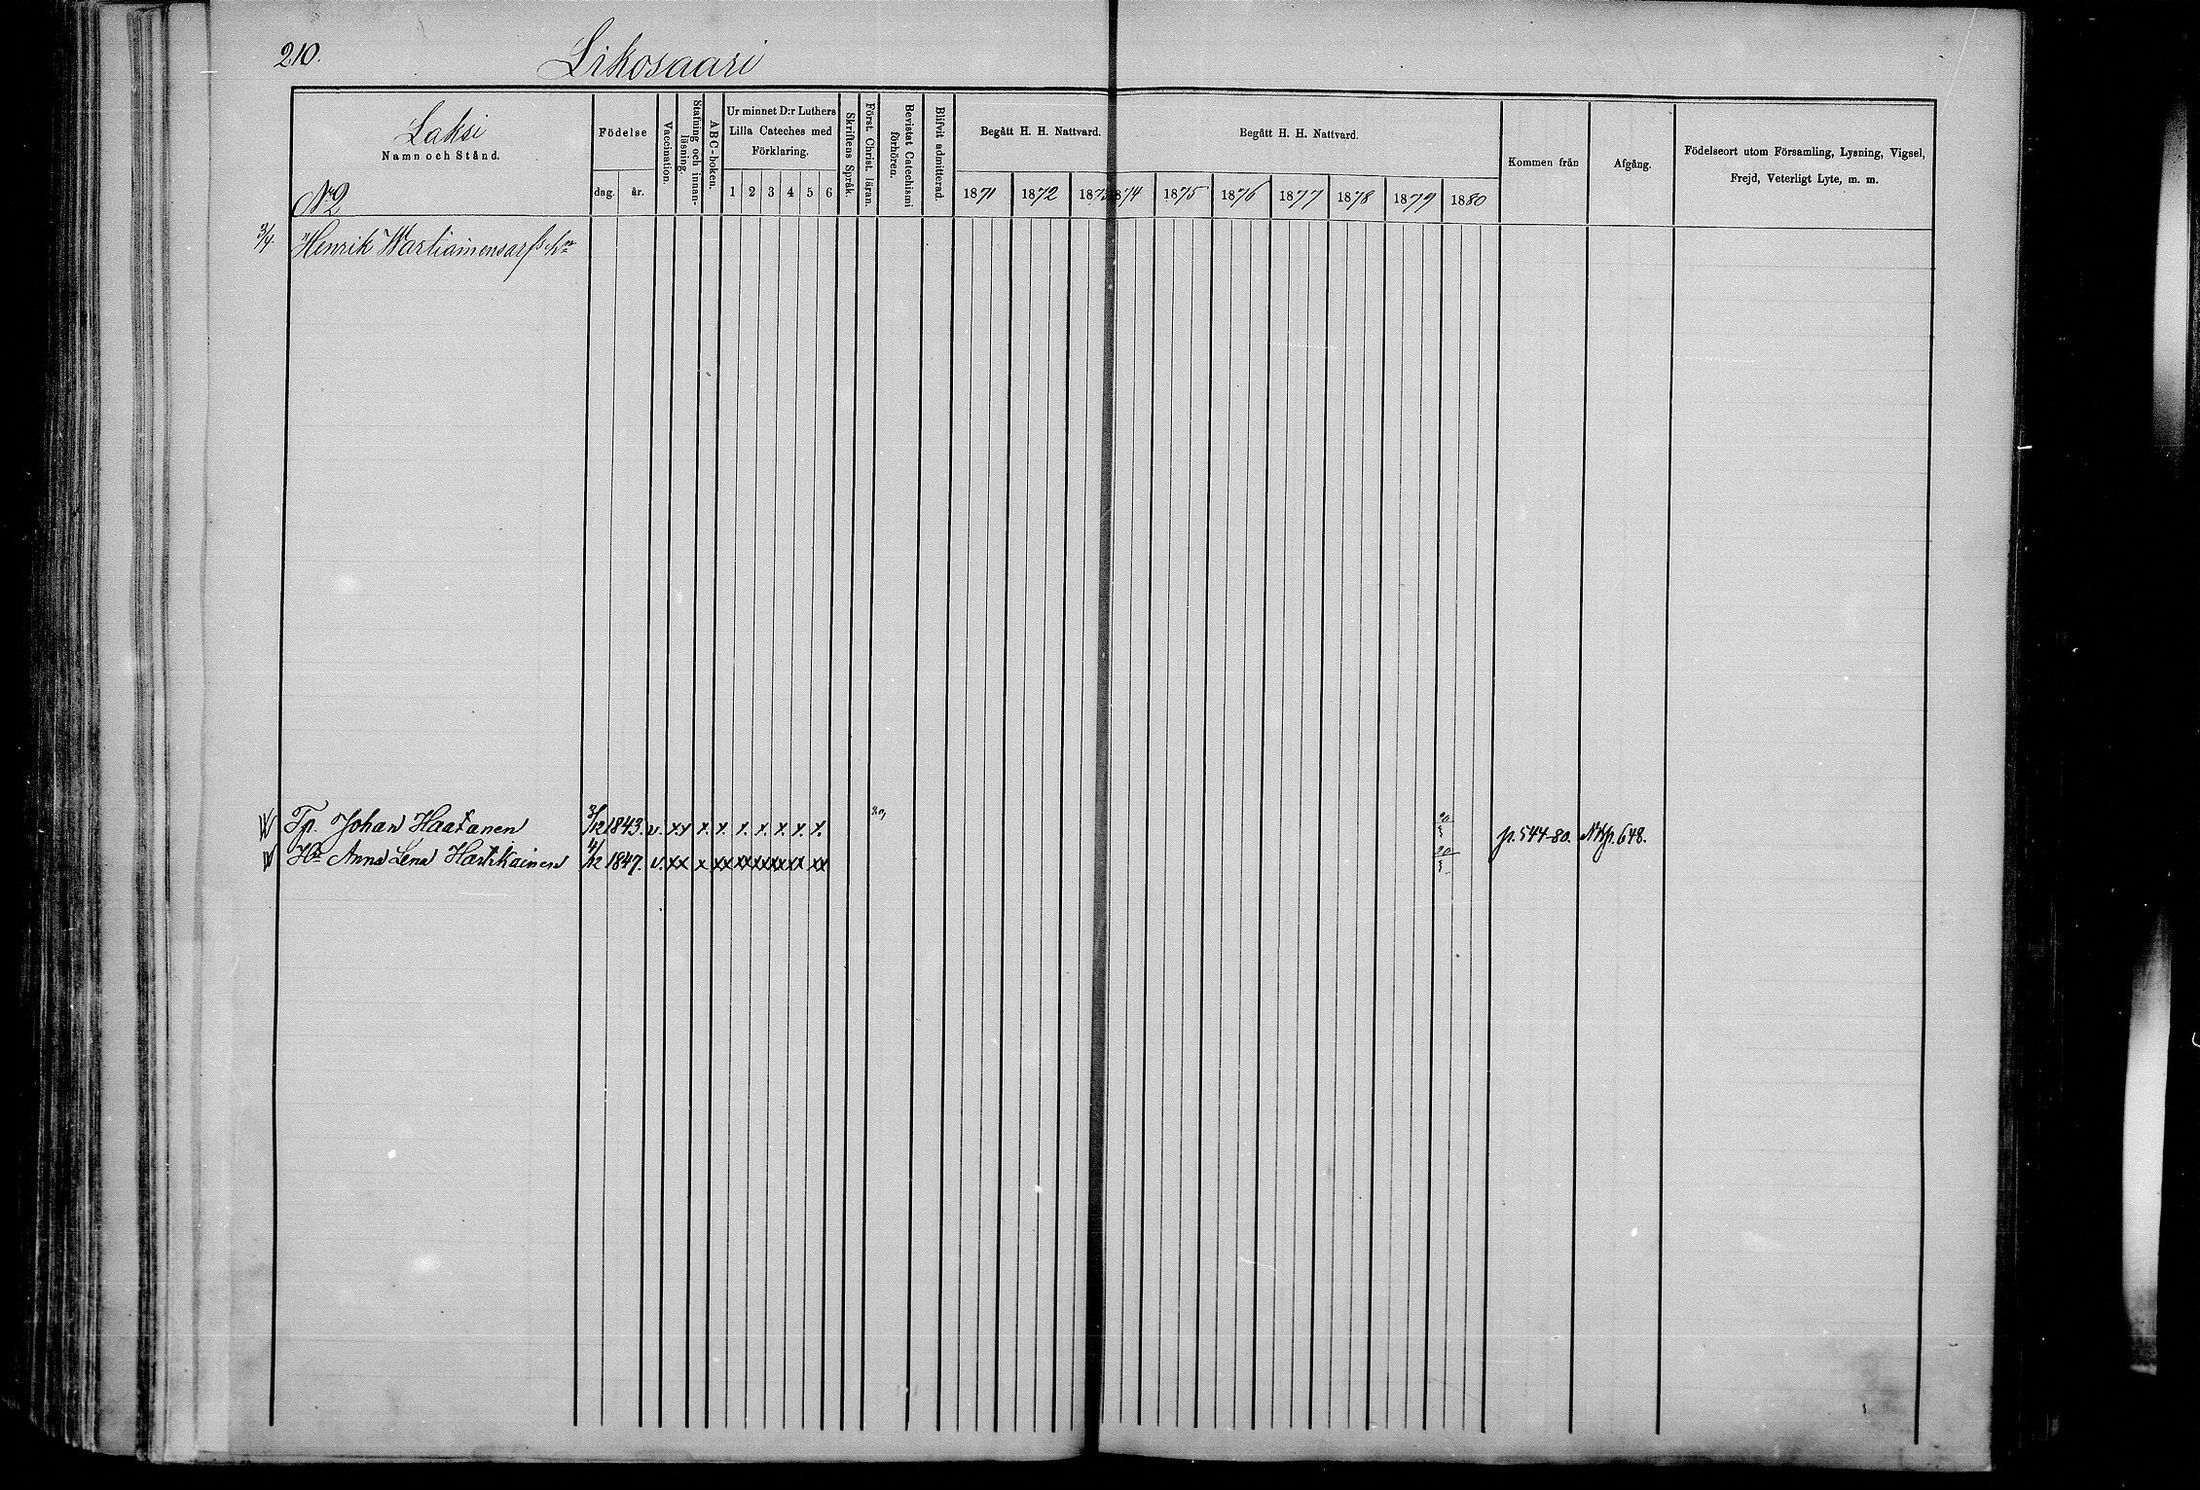 210.
Likosaari
Laksi
Namn och Stånd.
N:o 2
Födelse
dag. år.
Vaccination.
Stafning och innan-läsning.
ABC-boken.
Ur minnet D:r Luthers
Lilla Cateches med
Förklaring.
1 2 3 4 5 6
Skriftens Språk.
Först. Christ. läran.
Bevistat Catechismi förhören.
Blifvit admitterad.
Begått H. H. Nattvard.
1871 1872 1873
Begått H. H. Nattvard.
1874 1875 1876 1877 1878 1879 1880
Kommen från
Afgång.
Födelseort utom Församling, Lysning, Vigsel,
Frejd, Veterligt Lyte, m. m.
3/4. Henrik Wartiainens
Tp. Johan Haatanen 3/12 1843. v. x x x x x x x x x 20/3 p. 544-80. p. 648.
Hu Anna Lena Hartikainen 4/12 1847. v. xx x xx xx xx xx xx xx 20/3